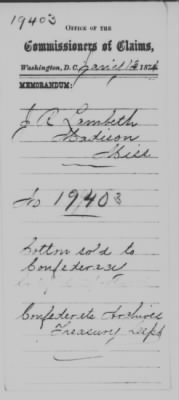 19403
OFFICE OF THE
Commissioners of Claims,
Washington, D.C., 1874
MEMORANDUM:
J R Lambeth
Madison
Miss
No 19403
Cotton sold to
Confederacy
Confederate Archives
Treasury Dept